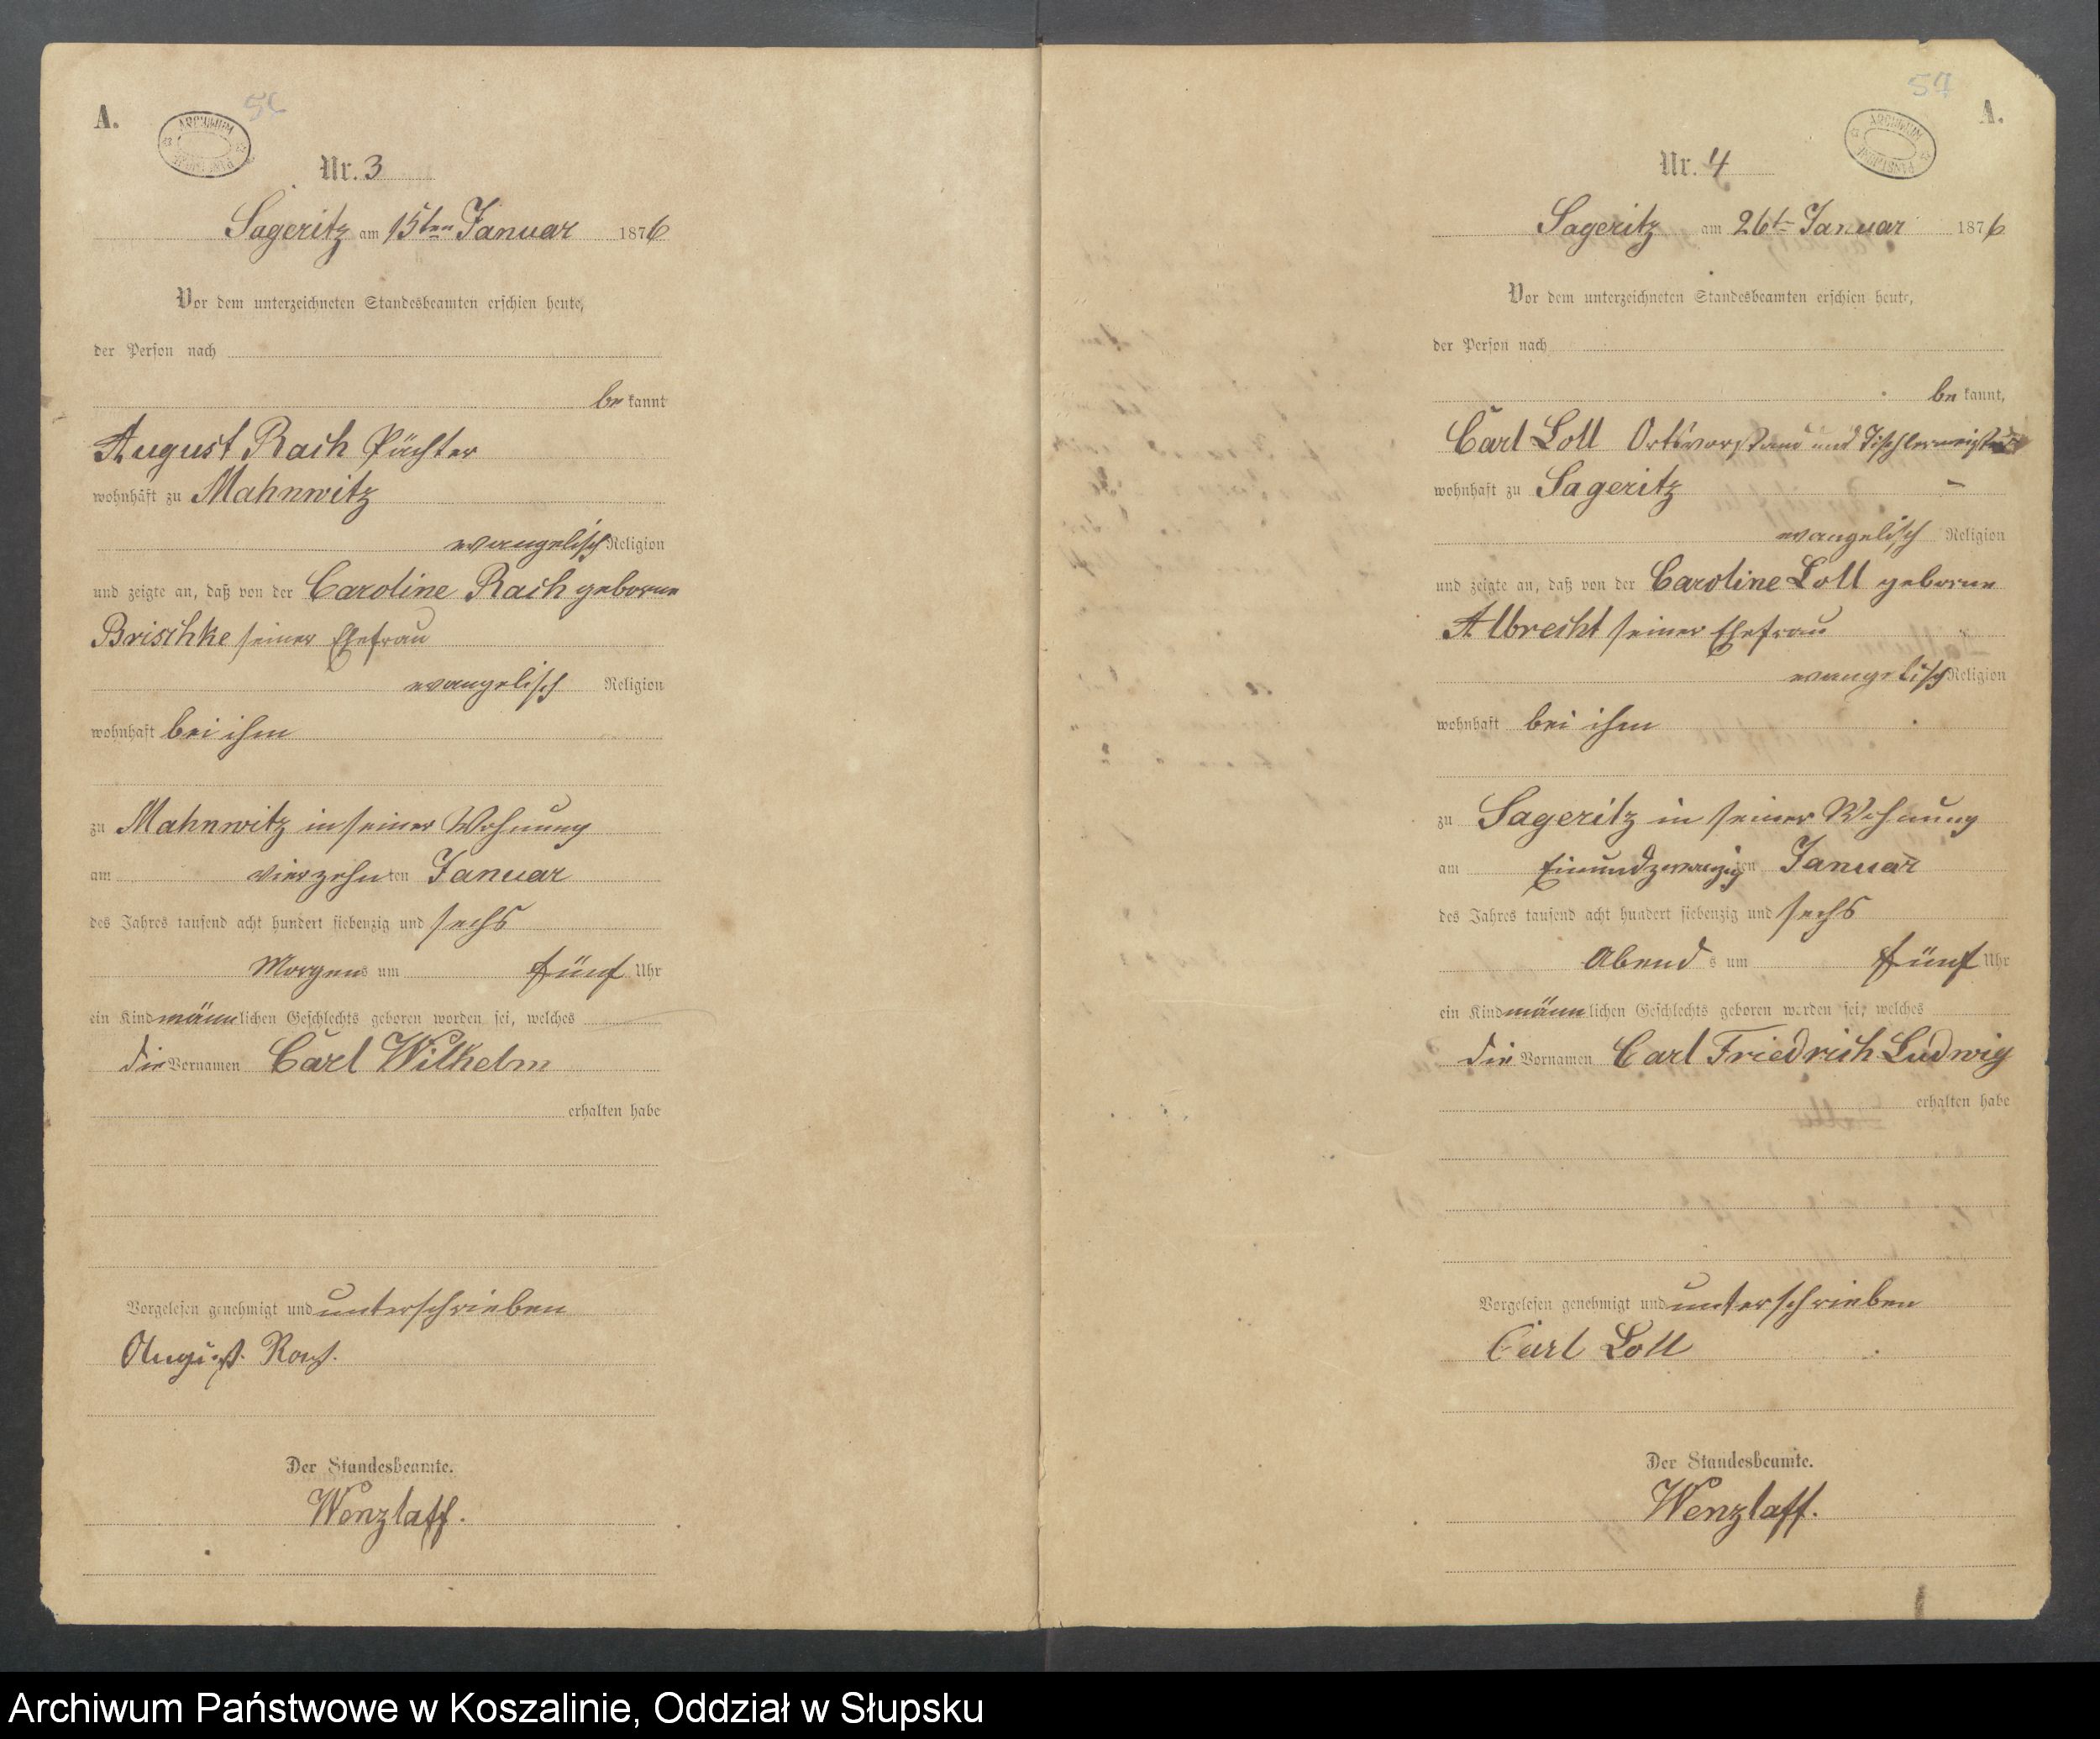 A.
ARCHIWUM PAŃSTWOWE
Nr. 3
Sageritz am 15ten Januar 1876
Vor dem unterzeichneten Standesbeamten erschien heute,
der Person nach
bekannt
August Rach Pächter
wohnhaft zu Mahnwitz
evangelisch Religion
und zeigte an, daß von der Caroline Rach geborne
Brischke seiner Ehefrau
evangelisch Religion
wohnhaft bei ihm
zu Mahnwitz in seiner Wohnung
am vierzehnten Januar
des Jahres tausend acht hundert siebenzig und sechs
Morgens um fünf Uhr
ein Kind männlichen Geschlechts geboren worden sei, welches
die Vornamen Carl Wilhelm
erhalten habe
Vorgelesen genehmigt und unterschrieben
August
Der Standesbeamte.
Wenzlaff.
57
A.
ARCHIWUM PAŃSTWOWE
Nr. 4
Sageritz am 26t Januar 1876
Vor dem unterzeichneten Standesbeamten erschien heute,
der Person nach
bekannt,
Carl Loll Ortsvorstand und Tischlermeister
wohnhaft zu Sageritz
evangelisch Religion
und zeigte an, daß von der Caroline Loll geborne
Albrecht seiner Ehefrau
evangelisch Religion
wohnhaft bei ihm
zu Sageritz in seiner Wohnung
am Einundzwanzigten Januar
des Jahres tausend acht hundert siebenzig und sechs
Abends um fünf Uhr
ein Kind männlichen Geschlechts geboren worden sei, welches
die Vornamen Carl Friedrich Ludwig
erhalten habe
Vorgelesen genehmigt und unterschrieben
Carl Loll
Der Standesbeamte.
Wenzlaff.
Archiwum Państwowe w Koszalinie, Oddział w Słupsku